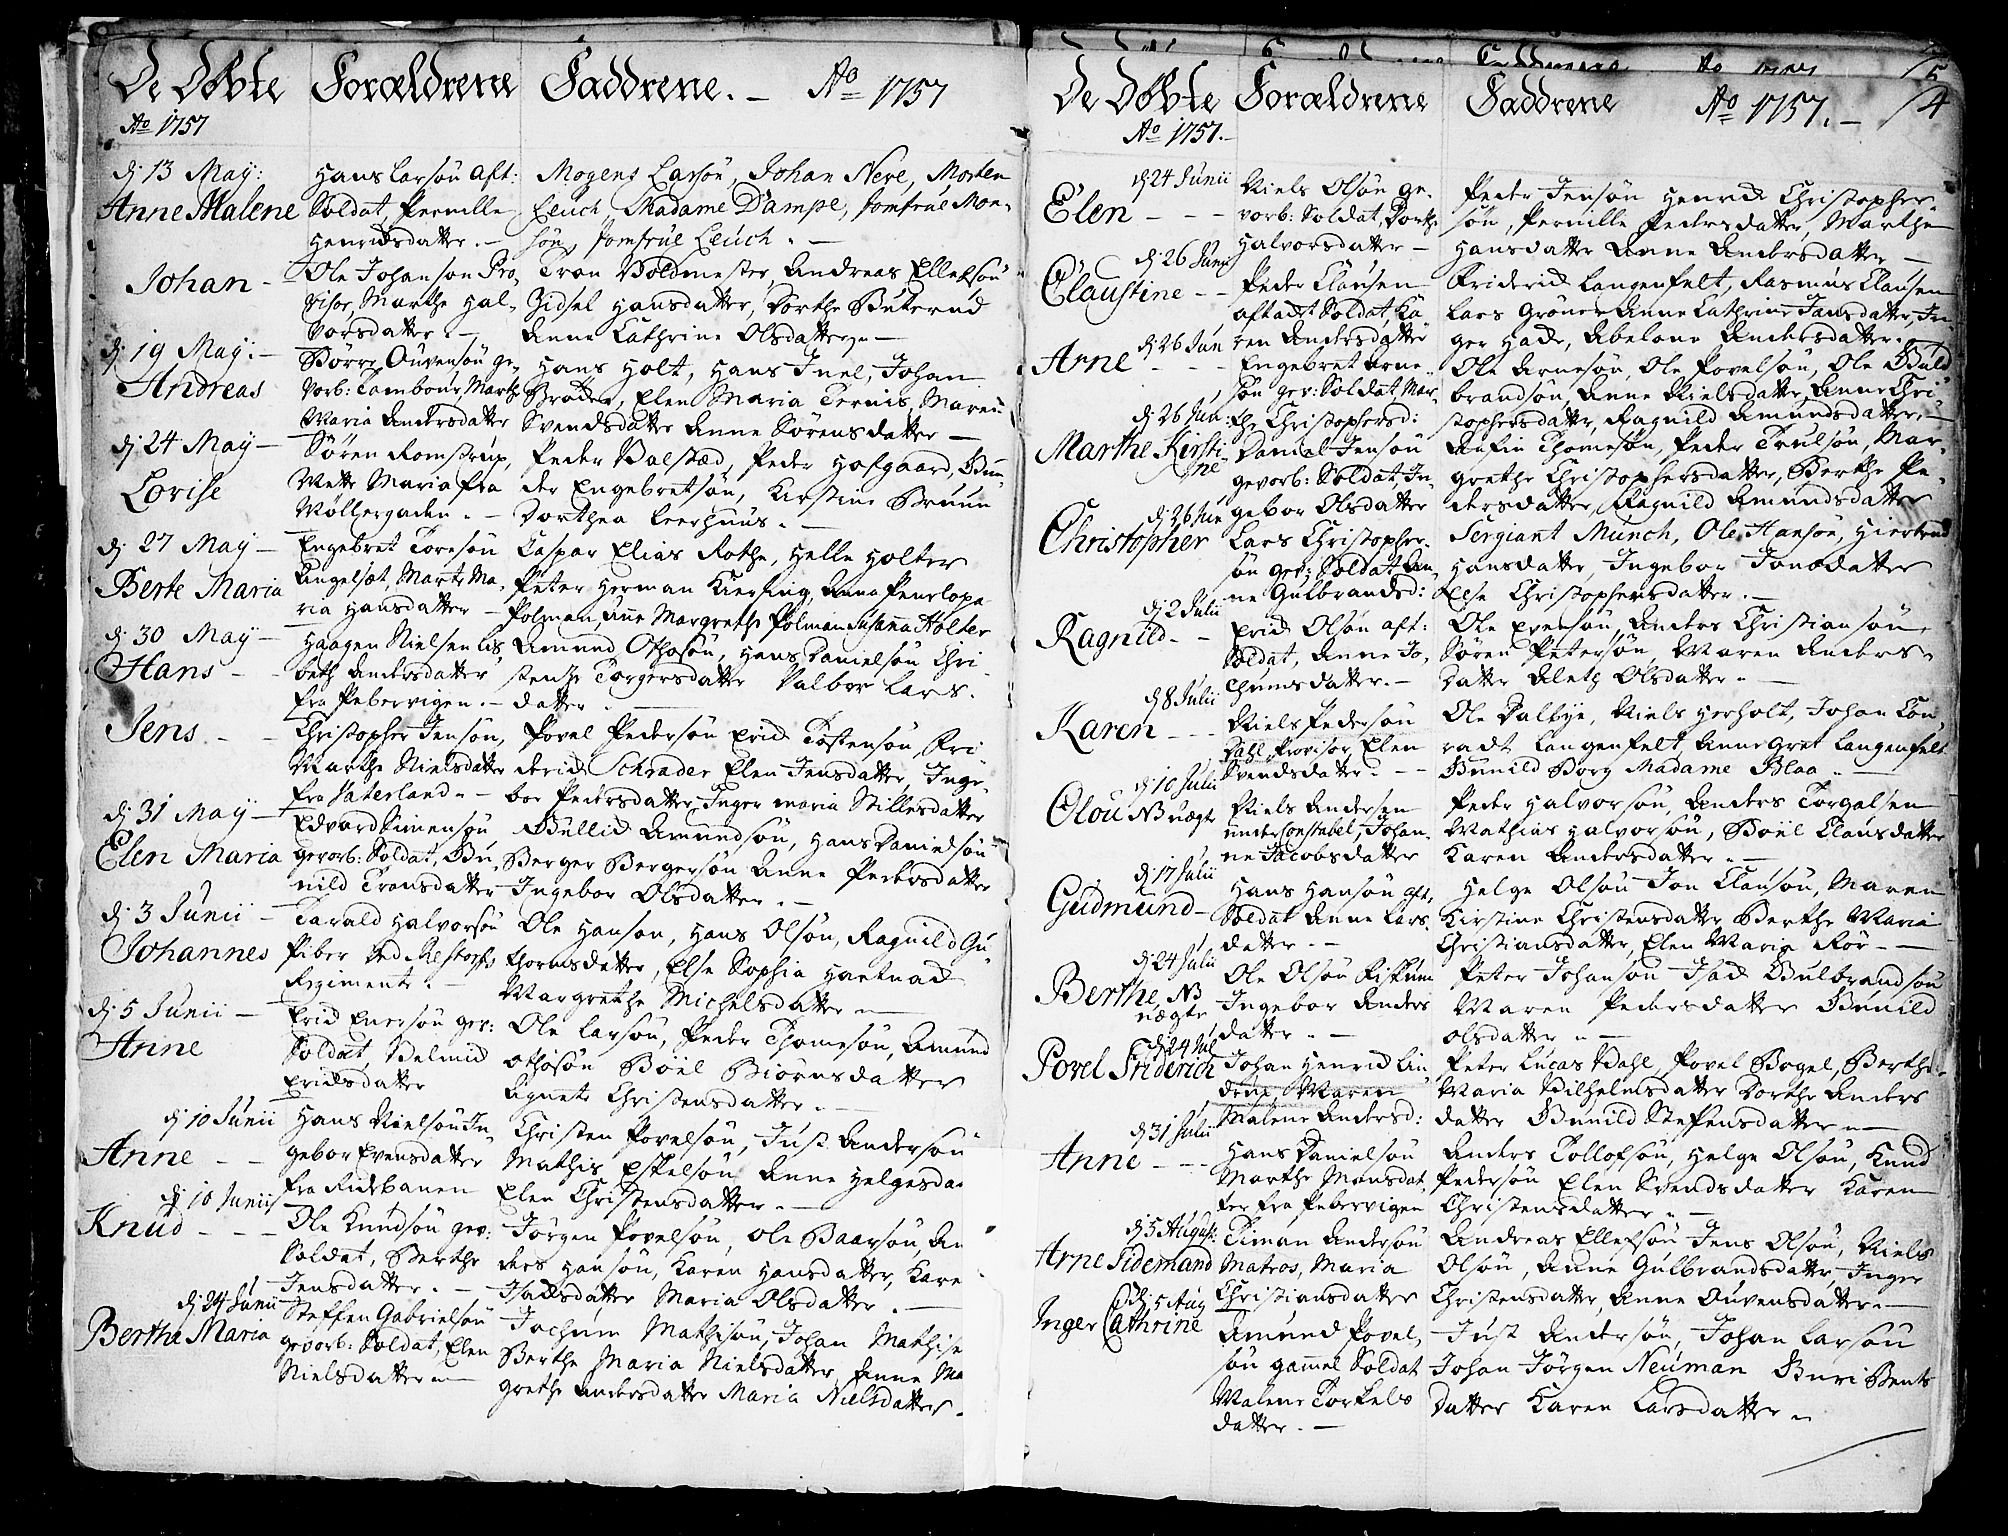 De Døbte Forældrene Faddrene. — Ao 1757
Ao 1757
dj 13 May:
Anne Malene
Hans Larsøn aft:
Soldat, Pernille
Henrichsdatter. —
Mogens Larsøn, Johan Neve, Morten
Leuch Madame Dampe, Jomfrue Mon-
søn, Jomfrue Leuch. —
Johan —
Ole Johanson Pro-
visor, Marthe Hal-
vorsdatter. —
Tron Boldmester, Andreas Ellefsøn
Zidsel Hansdatter, Dorthe Buterud
Anne Cathrine Olsdatter. —
dj 19 May. —
Andreas
Børre Ouvensøn ge-
vorb: Tambour, Marthe
Maria Andersdatter
Hans Holt, Hans Juel, Johan
Brøder, Elen Maria Ternis, Maren
Svendsdatter Anne Sørensdatter —
dj 24 May —
Lovise
Søren Romstrup,
Mette Maria fra
Møllergaden. —
Peder Balstæd, Peder Hofgaard, Gun-
der Engebretsøn, Kirstine Bruun
Dorthea Leerhuus. —
dj 27 May —
Berte Maria
Engebret Toresøn
Langelset, Marte Ma-
ria Hansdatter —
Caspar Elias Rothe, Helle Holter
Peter Herman Kierfing, Anna Penelopa
Polman, Anne Margrethe Polman Susanna Holter
dj 30 May —
Hans —
Haagen Nielsen Lis
beth Andersdatter
fra Pebervigen. —
Amund Othosøn, Hans Danielsøn Chri
stenze Torgersdatter Valbor Lars-
datter. —
Jens — —
Christopher Jensøn,
Marthe Nielsdatter
fra Vaterland. —
Povel Pedersøn Erich Tostensøn, Fri
derich Schrader Elen Jensdatter, Inge-
bor Pedersdatter, Inger Maria Stillesdatter
dj 31 May —
Elen Maria
Edvard Simensøn
gevorb: Soldat, Gu-
nild Tronsdatter
Gullich Amundsøn, Hans Danielsøn
Berger Bergersøn Anne Pedersdatter
Ingebor Olsdatter. —
dj 3 Junii —
Johannes
Tarald Halvorsøn
Piber ved Restorffs
Regimente. —
Ole Hanson, Hans Olsøn, Ragnild Gu-
thormsdatter, Else Sophia Hartnack
Margrethe Michelsdatter —
dj 5 Junii —
Anne
Erich Enersøn gev:
Soldat, Velmich
Erichsdatter
Ole Larsøn, Peder Thomesøn, Amund
Othosøn Boël Biørnsdatter
Agnete Christensdatter. —
dj 10 Junii
Anne — —
Hans Nielsøn In-
gebor Evensdatter
fra Ridebanen
Christen Povelsøn, Just Andersøn
Mathis Eskelsøn Anne Helgesda
Elen Christensdatter. —
dj 10 Junii
Knud — —
Ole Knudsøn gev:
Soldat, Berthe
Jensdatter. —
Jørgen Povelsøn, Ole Baarsøn, An
ders Hansøn, Karen Hansdatter, Kare
Isachsdatter Maria Olsdatter. —
dj 24 Junii
Berthe Maria
Steffen Gabrielsøn
gevorb: Soldat, Elen
Nielsdatter —
Jochum Mathisøn, Johan Mathise
Berthe Maria Nielsdatter, Anne Ma
grethe Andersdatter Maria Nielsdatter.
De Døbte Forældrene Faddrene Ao 1757. — 4
Ao 1757. —
dj 24 Junii
Elen — — —
Niels Olsøn ge-
vorb: Soldat, Dorthe
Halvorsdatter —
Peder Jensøn Henrich Christopher-
søn, Pernille Pedersdatter, Marthe
Hansdatter Anne Andersdatter —
dj 26 Junii
Claustine — —
Peder Clausen
aftackt Soldat, Ka
ren Andersdatter
Friderich Langenfelt, Rasmus Clausen
Lars Grøner Anne Cathrine Jansdatter, In-
ger Hade, Abelone Andersdatter.
dj 26 Jun
Arne — — —
Engebret Arne-
søn gev: Soldat, Mar-
the Christophersd:
Ole Arnesøn, Ole Povelsøn, Ole Guld
brandsøn, Anne Nielsdatter, Anne Chri-
stophersdatter, Ragnild Amundsdatter. —
dj 26 Jun:
Marthe Kirsti
ne
Daniel Jensøn
gevorb: Soldat, In-
gebor Olsdatter
Anfin Thomesøn, Peder Trulsøn, Mar-
grethe Christophersdatter, Berthe Pe-
dersdatter, Ragnild Amundsdatter
dj 26 Jun
Christopher
Lars Christopher-
søn gev: Soldat, An-
ne Gulbrandsd:
Sergiant Munch, Ole Hansøn, Hiertrud
Hansdatter, Ingebor Jonsdatter
Else Christophersdatter. —
dj 2 Julii
Ragnild — —
Erich Olsøn aft:
Soldat, Anne Jo-
chumsdatter. —
Ole Evensøn, Anders Christiansøn
Søren Petersøn, Maren Anders-
datter Aleth Olsdatter. —
dj 8 Julii
Karen — — —
Niels Pedersøn
Dahl Provisor, Elen
Svendsdatter. — —
Ole Dalbye, Niels Herholt, Johan Con-
radt Langenfelt, Anne Gret Langenfelt
Gunild Borg Madame Blaa. —
dj 10 Julii
Olou NB uægte
Niels Andersen
under Constabel, Johan-
ne Jacobsdatter
Peder Halvorsøn, Anders Torgalsen
Mathias Halvorsøn, Boël Clausdatter
Karen Andersdatter. —
dj 17 Julii
Gudmund —
Hans Hansøn aft,
Soldat Anne Lars
datter. —
Helge Olsøn Jon Clausøn, Maren
Kirstine Christensdatter Berthe Maria
Christiansdatter, Elen Maria Rør — —
dj 24 Julii
Berthe, NB
uægte
Ole Olsøn Riskum
Ingebor Anders
datter. —
Peter Johansøn Isach Gulbrandsøn
Maren Pedersdatter Gunild
Olsdatter —
dj 24 Jul
Povel Friderich
Johan Henrich Lin
drup, Maren
Malene Andersd:
Peter Lucas Wahl, Povel Bogel, Berthe
Maria Vilhelmsdatter Dorthe Anders
datter Gunild Steffensdatter —
dj 31 Julii
Anne — — —
Hans Danielsøn
Marthe Monsdat-
ter fra Pebervigen
Anders Tollofsøn, Helge Olsøn, Knud
Pedersøn Elen Svendsdatter Karen
Christensdatter. —
dj 5 August:
Arne Tidemand
Timan Andersøn
Matros, Maria
Christiansdatter
Andreas Ellefsøn Jens Olsøn, Niels
Olsøn, Anne Gulbrandsdatter, Inger
Christensdatter, Anne Ouvensdatter. —
dj 5 Aug
Inger Cathrine
Amund Povel-
søn gammel Soldat
Malene Torkels
datter. —
Just Andersøn, Johan Larsøn
Johan Jørgen Neuman Guri Bents
datter Karen Larsdatter —